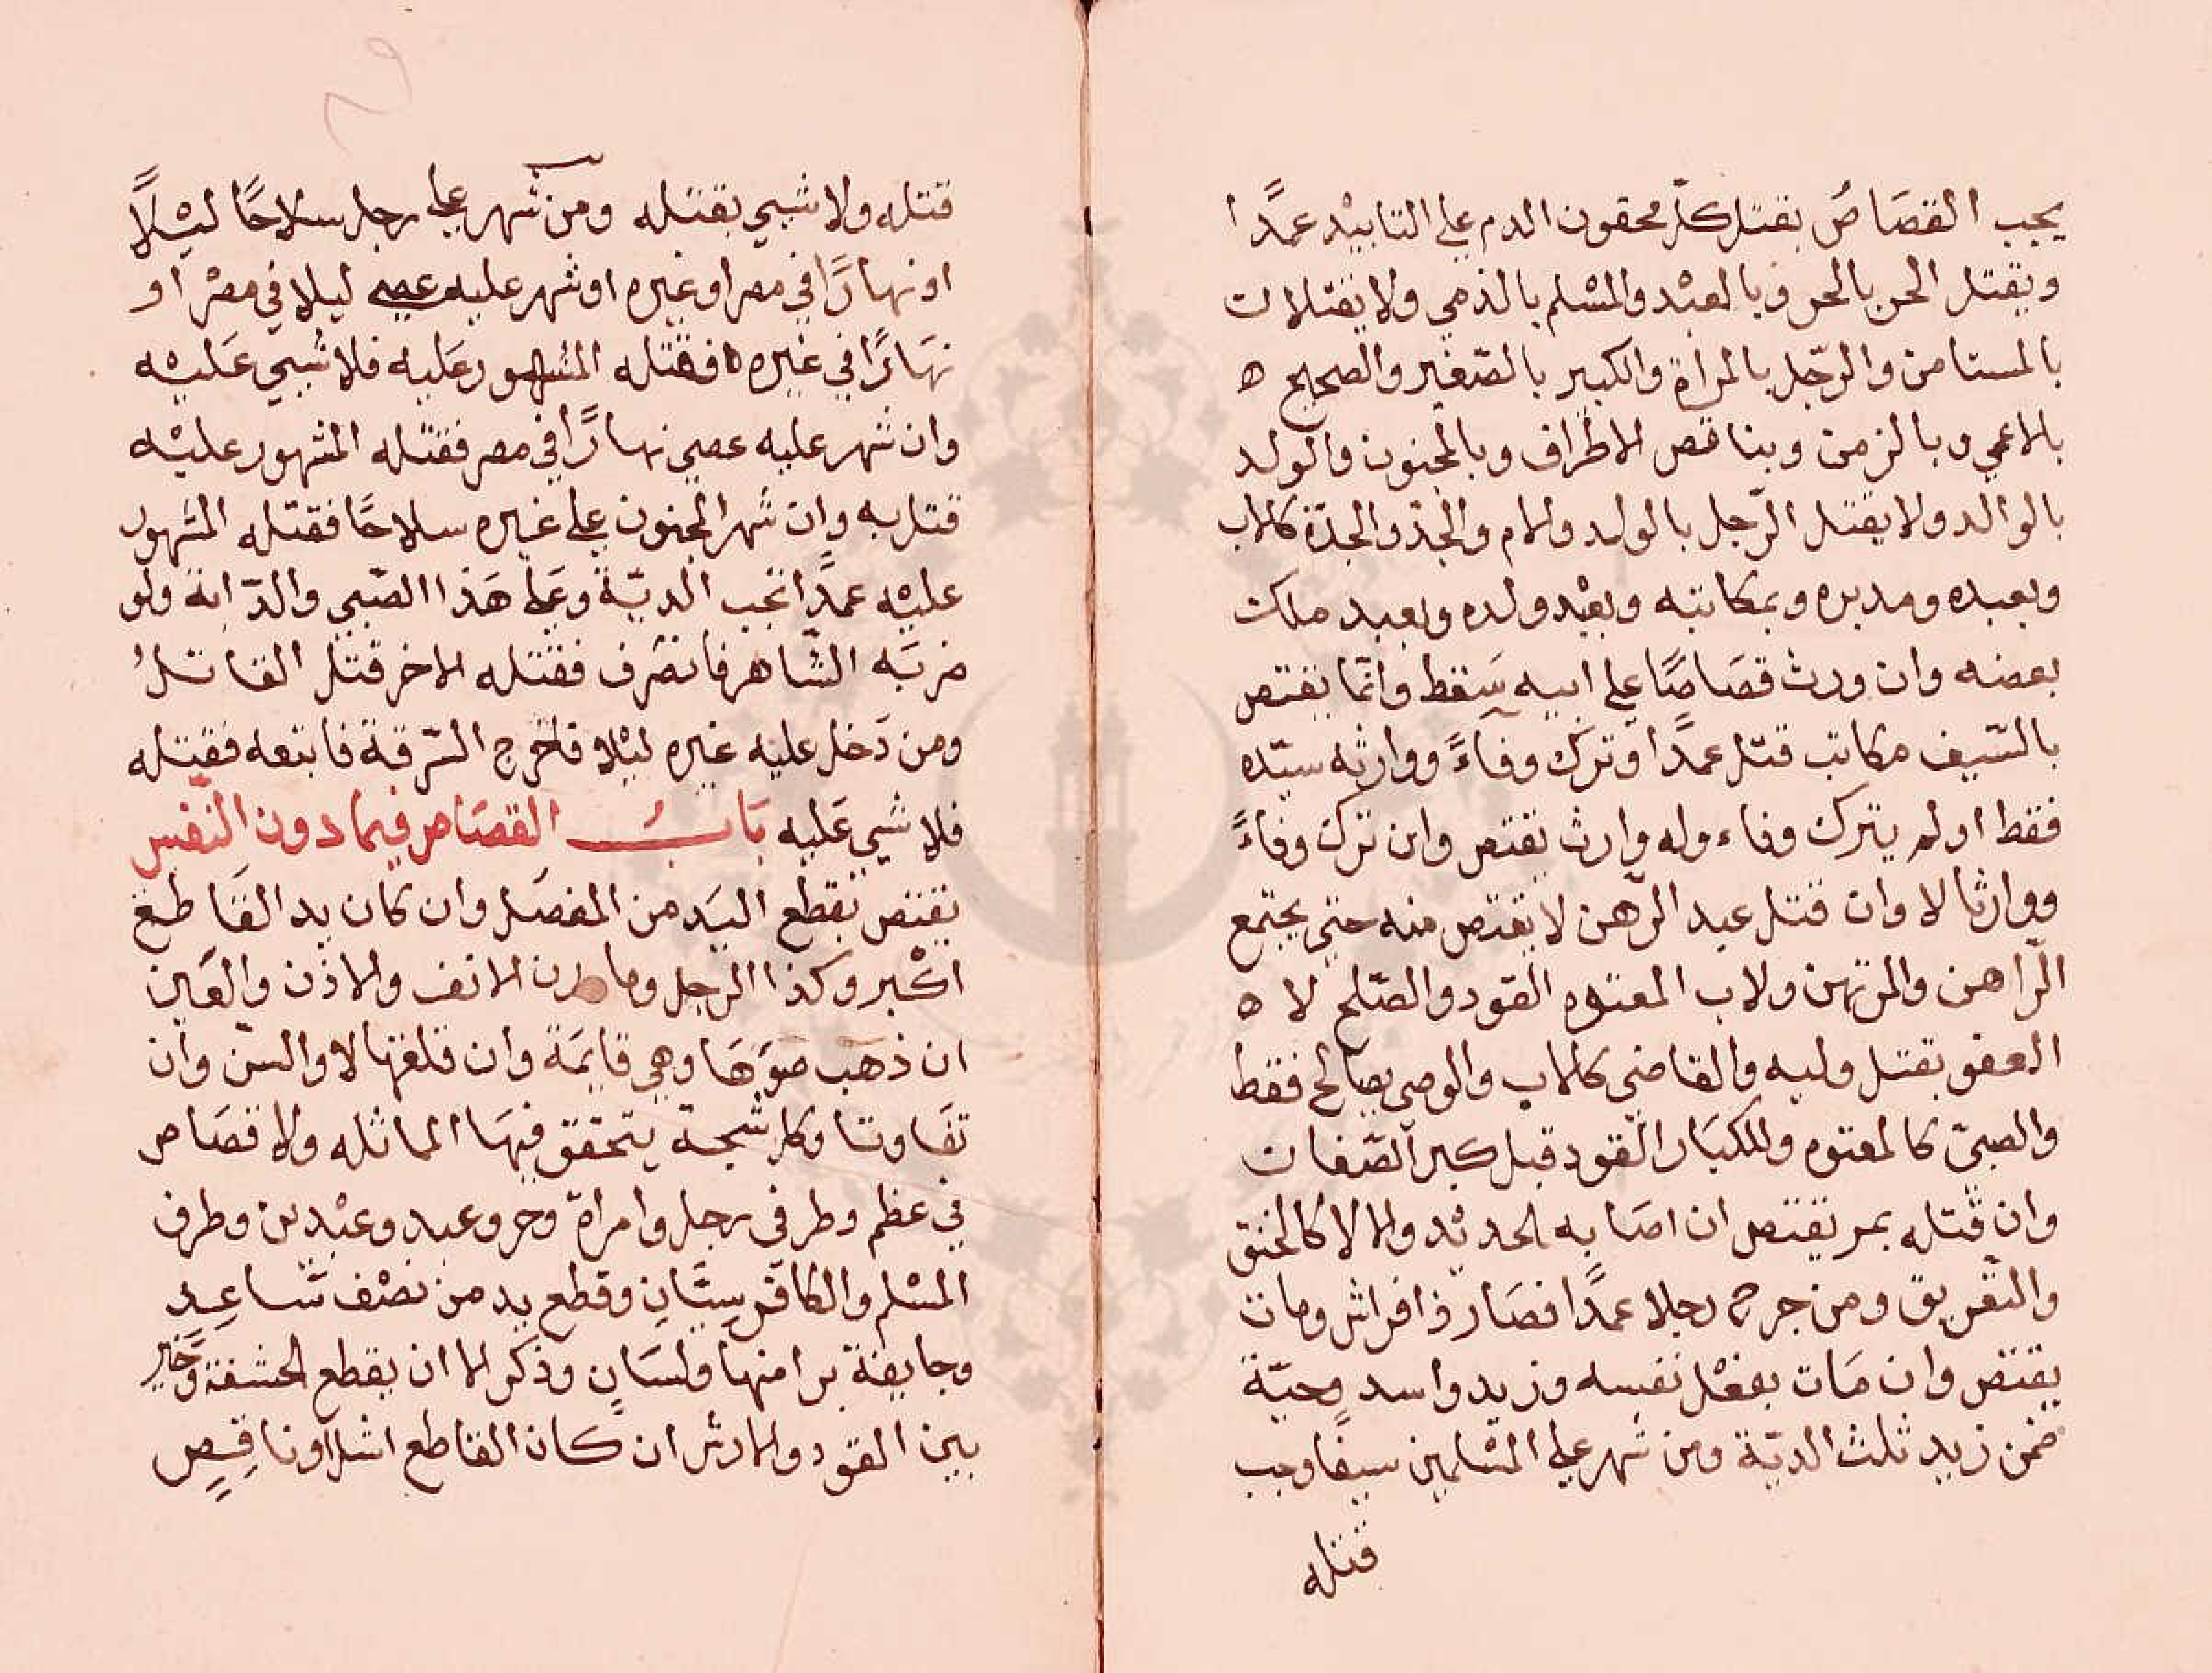 يجب القصَاصُ بقتل كلّ محقون الدم علي التابيْد عمدًا
ويقتل الحر بالحر وبالعبْد والمسْلم بالذمي ولا يقتلان
بالمستامن والرّجل بالمراة والكبير بالصّغير والصحيح ه
بالاعمي وبالزمن وبناقص الاطراف وبالمجنون والولد
بالوالد ولا يقتل الرّجل بالولد والام والجدّ والجدّة كالاب
وبعبده ومدبره وبمكاتبه وبعبْد ولده وبعبد ملك
بعضه وان ورث قصَاصًا علي ابيه سَقط وانّما يقتص
بالسّيف مكاتب قتل عمدًا وترك وفاءً ووارثه سيّده
فقط او لم يترك وفاء وله وارث يقتص وان ترك وفاءً
ووارثا لا وان قتل عبد الرّهن لا يقتص منه حتي يجتمع
الرّاهن والمرتهن ولاب المعتوه القود والصّلح لا ه
العفو بقتل وليه والقاضي كالاب والوصي يصالح فقط
والصبيّ كالمعتوه وللكبَار القود قبل كبر الصّغار
وان قتله بمر يقتص ان اصَابه الحديد والا لا كالخنق
والتّغريق ومن جرح رجلا عمدًا فصَار ذا فراش ومات
يقتص وان مَات بفعْل نفسه وزيد واسد وحيّة
ضمن زيد ثلث الديّة ومن شهر علي المسْلمين سيفًا وجب
قتله
قتله ولا شيي بقتله ومن شهر علي رجل سلاحًا ليْلًا
او نهارًا في مصر او غيره او شهر عليه عصي ليلا في مصْر او
نهَارًا في غيره ه فقتله المشهور عليه فلا شيي عَليْه
وان شهر عليه عصي نهارًا في مصر فقتله المشهور عليْه
قتل به وان شهر المجنون علي غيره سلاحًا فقتله المشهور
عليْه عمدًا تجب الديّة وعَلي هَذا الصّبي والدّابة ولو
ضربَه الشّاهر فانصَرف فقتله الاخر قتل القاتلُ
ومن دَخل عليه غيره ليْلا فاخرج السّرقة فاتبعه فقتله
فلا شيي عَليه بَابُ القصَاص فيما دون النّفس
يقتص بقطع اليَد من المفصَل وان كان يد القَاطع
اكْبر وكذا الرجل ومارن الانف والاذن والعَين
ان ذهب ضوَؤهَا وهي قايمَة وان قلعَها لا والسّن وان
تفَاوتا وكل شجة يتحقق فيهَا المماثله ولا قصَاص
في عظم وطرفي رجل وامراة وحر وعبد وعبْدين وطرف
المسْلم والكافر سيّان وقطع يد من نصْف سَاعِد
وجايفة برا منها ولسَانٍ وذكر الا ان يقطع الحشفة وخُيّر
بين القود والارش ان كان القاطع اشلّ او ناقِصٍ